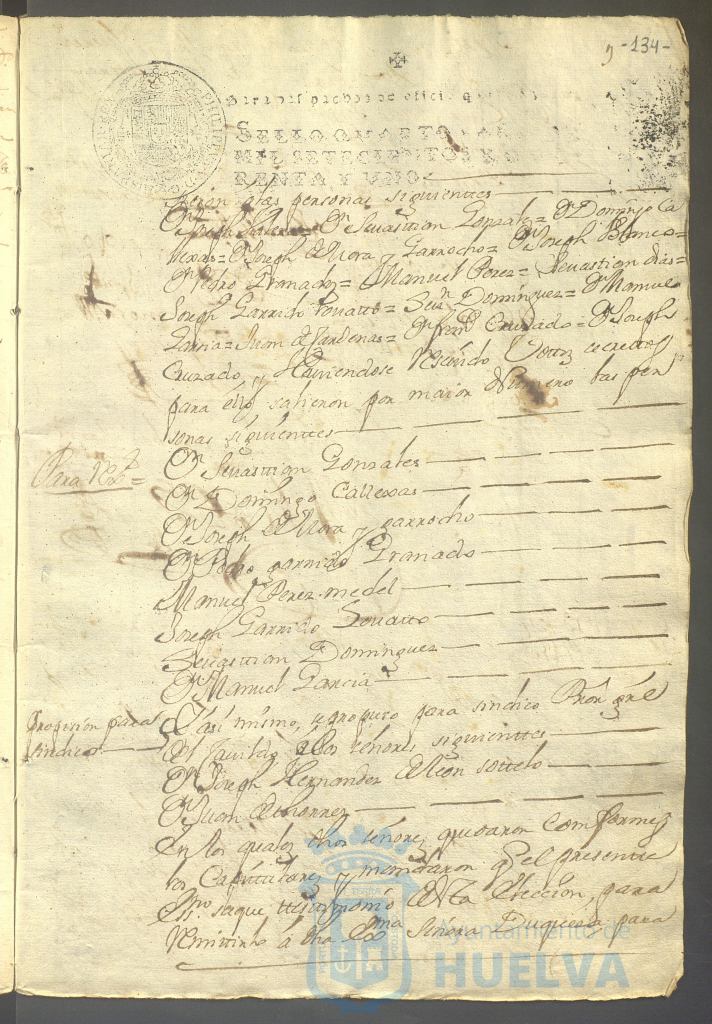 -134-
SELLO QUARTO
MIL SETECIENTOS Y
RENTA Y UNO
personas siguientes
Dn Joseph = Dn Sevastian Gonzales = Dn Domingo Ca
llexas = Dn Joseph de Mora y Garrocho = Dn Joseph Blanco =
Dn Pedro Granado = Manuel Perez = Sevastian dias =
Joseph Garrido = Sevn Dominguez = Dn Manuel
Garcia = Juan de Cardenas = Dn Franco Cruzado = Dn Joseph
Cruzado y Haviendose Votos secretos
para ello salieron por maior Numero las per
sonas siguientes
Para
Dn Sevastian Gonzales
Dn Domingo Callexas
Dn Joseph de Mora y garrocho
Dn Pedro garrido Granado
Manuel Perez medel
Joseph Garrido
Sevastian Dominguez
Dn Manuel Garcia
Propision para
sindico
Y asi mismo, se propuso para sindico Pror Gnel
del Cavildo los señores siguientes
Dn Joseph Hernandez de Leon sottelo
Dn Juan de
En los quales dhos señores quedaron Comformes
los Capitulares y mandaron qe el presente
Esno saque testimonio de esta Eleccion, para
Remitirlo a dha Exma Señora Duquesa, para
Ayuntamiento de
HUELVA